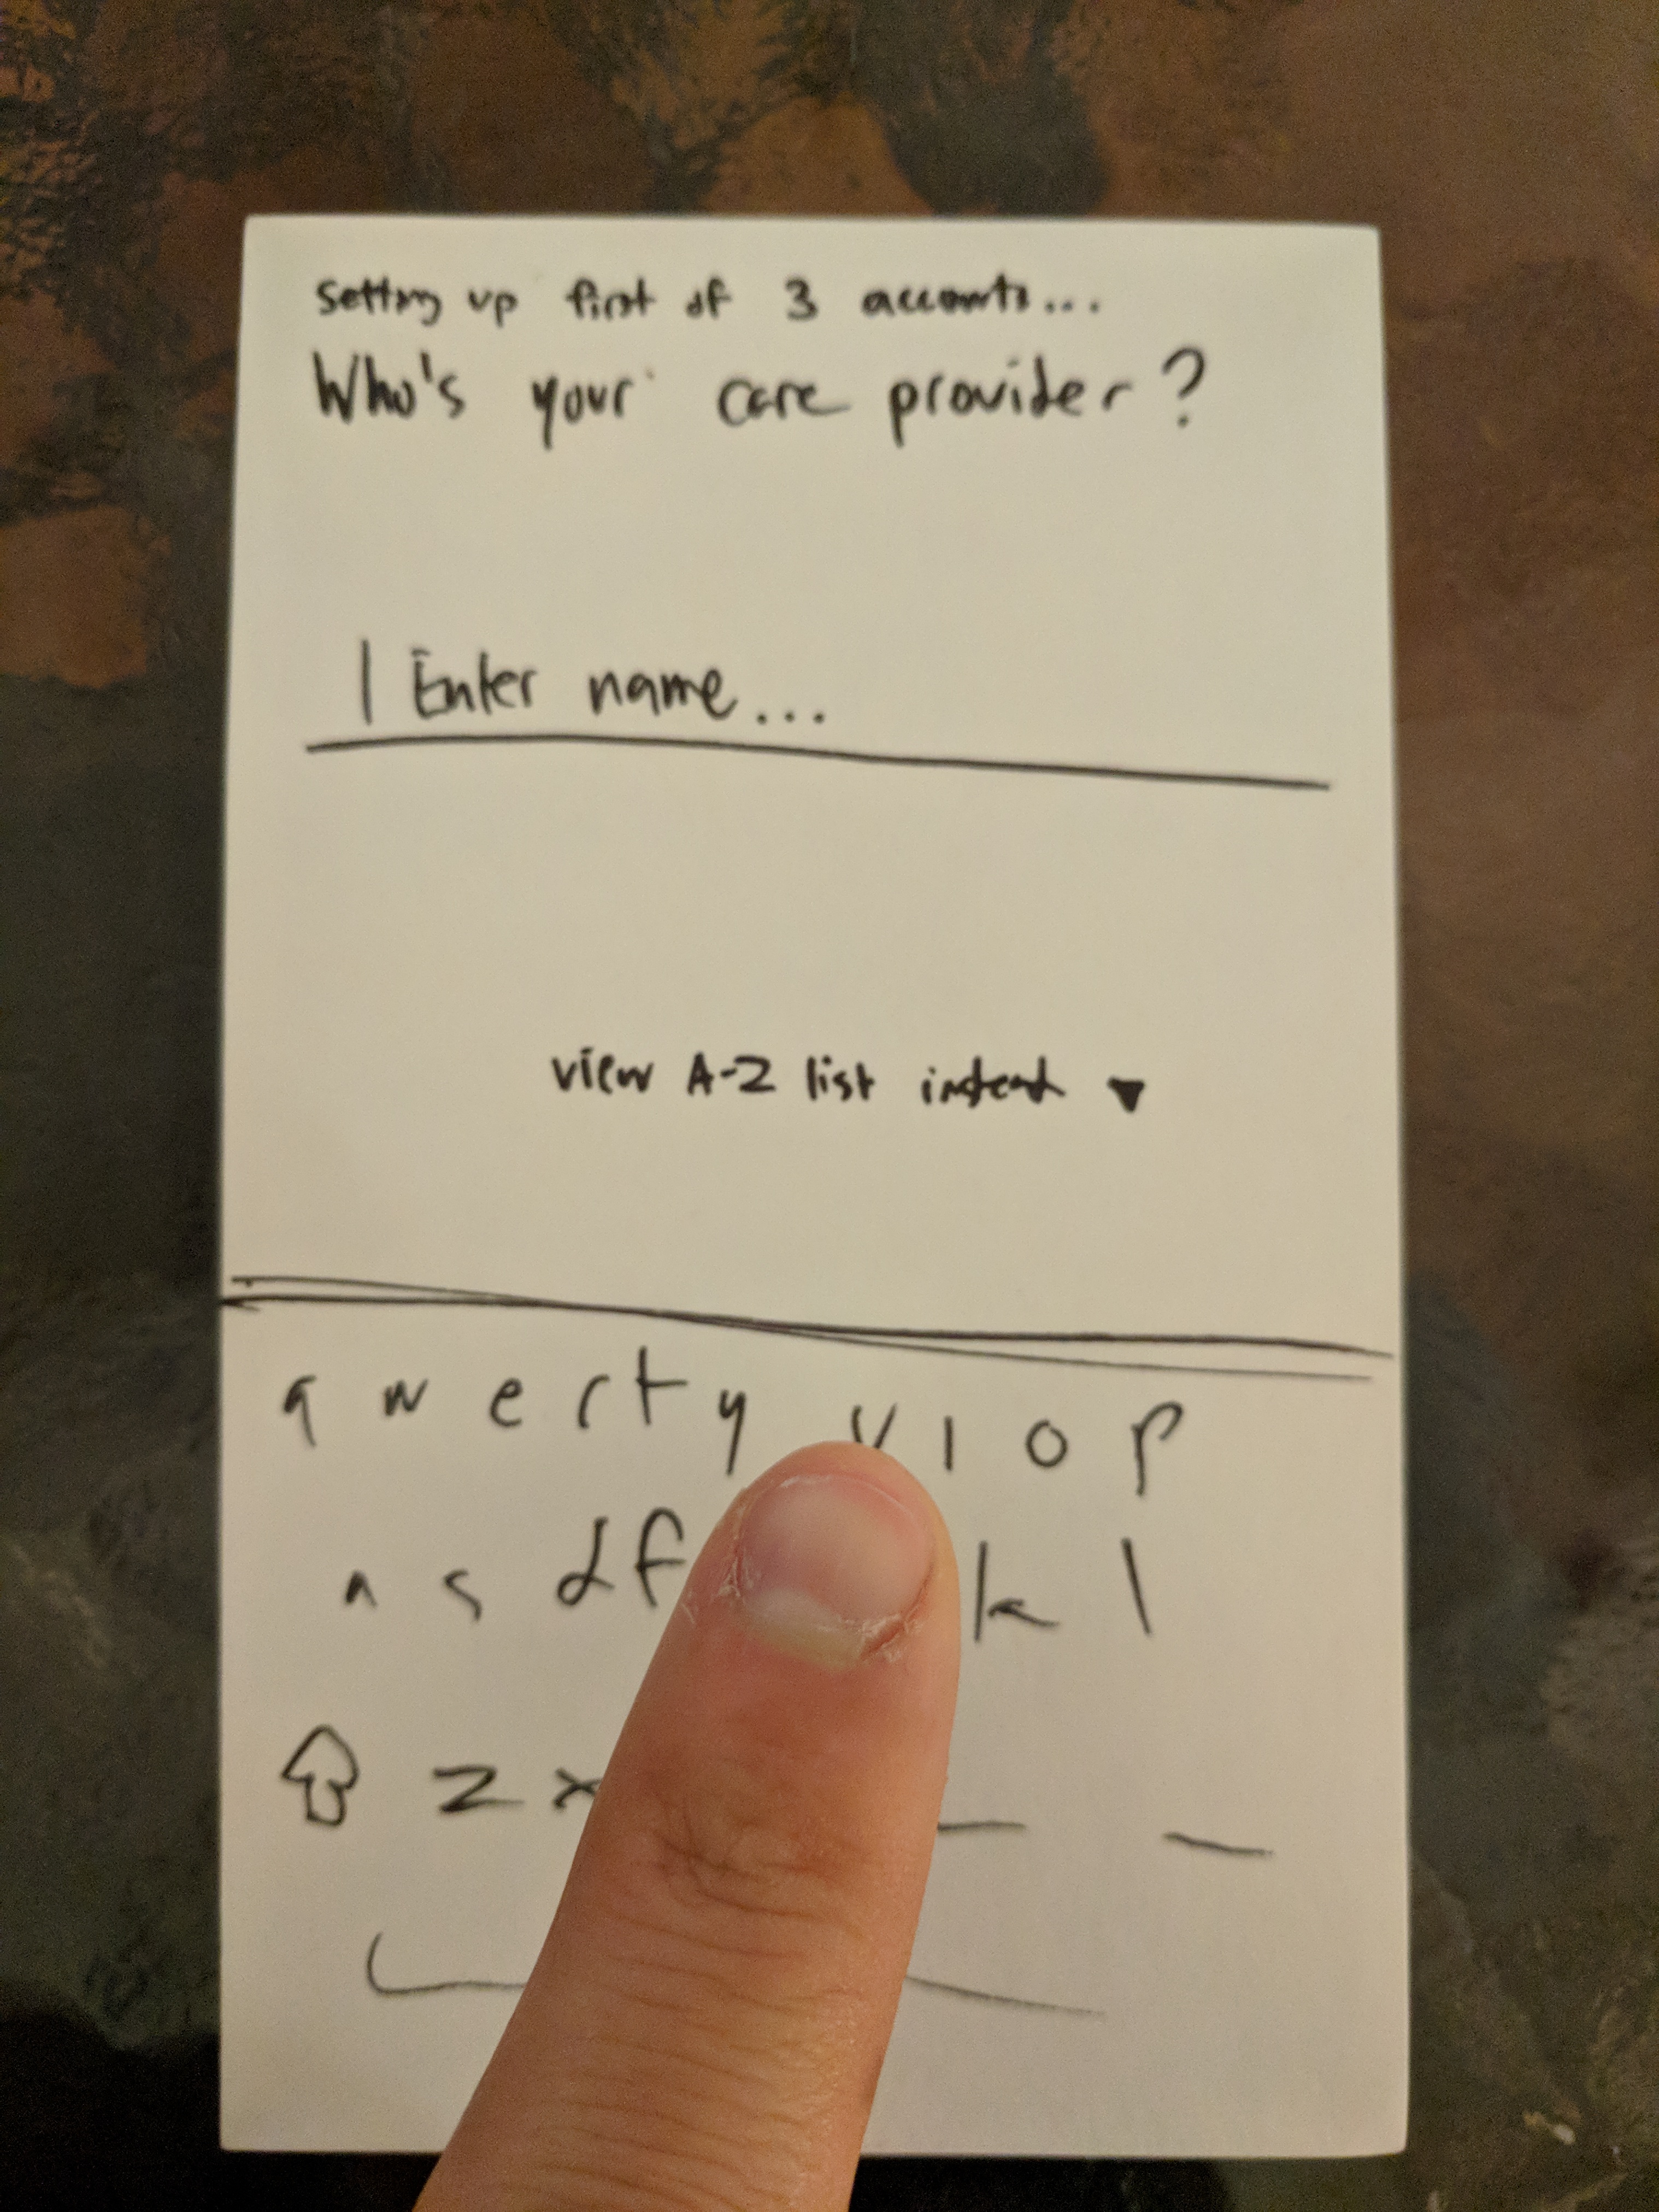 Setting up first of 3 accounts...
Who's your care provider?
| Enter name...
view A-Z list instead ▼
q w e r t y u i o p
a s d f k l
z x